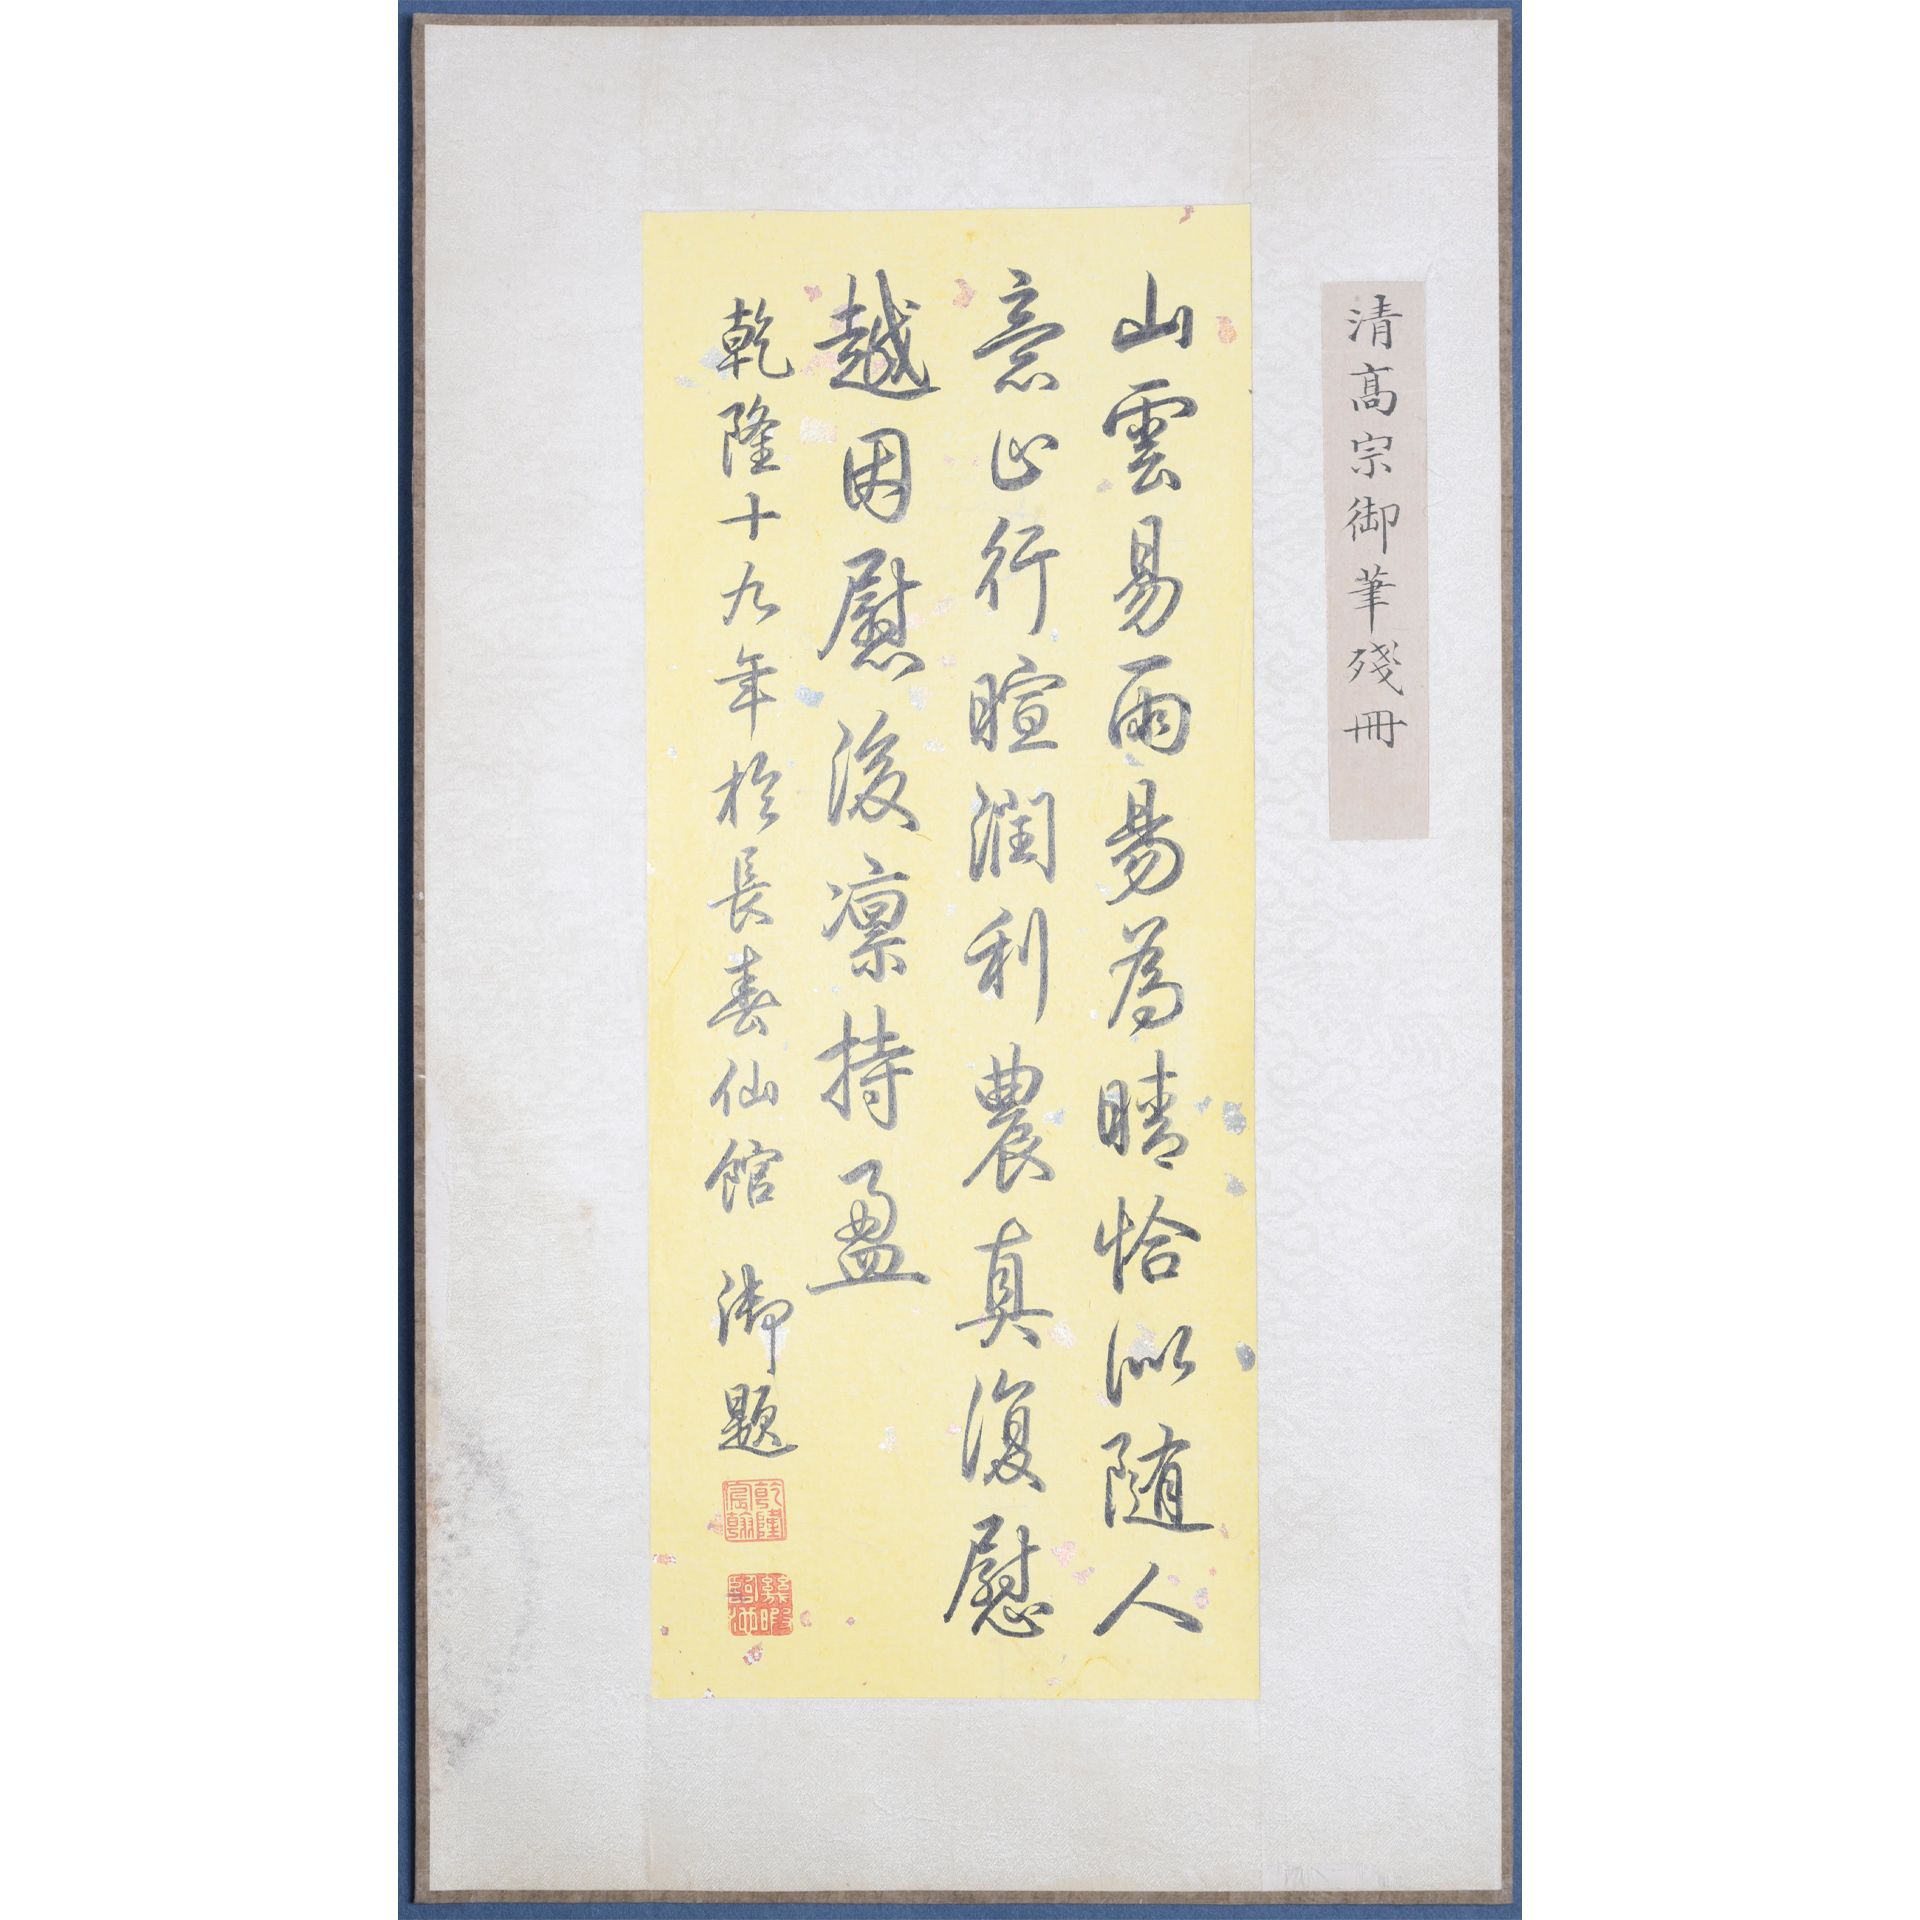 清髙宗御筆殘冊
山雲易雨易為晴恰似随人
意止行暄潤利農真復慰
越因慰後凜持盈
乾隆十九年於長春仙館 御題
乾隆宸翰
幾暇臨池